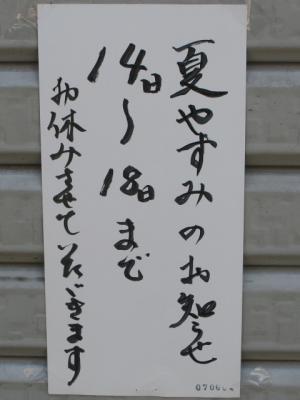 夏やすみのお知らせ
14日〜18日まで
お休みさせていただきます